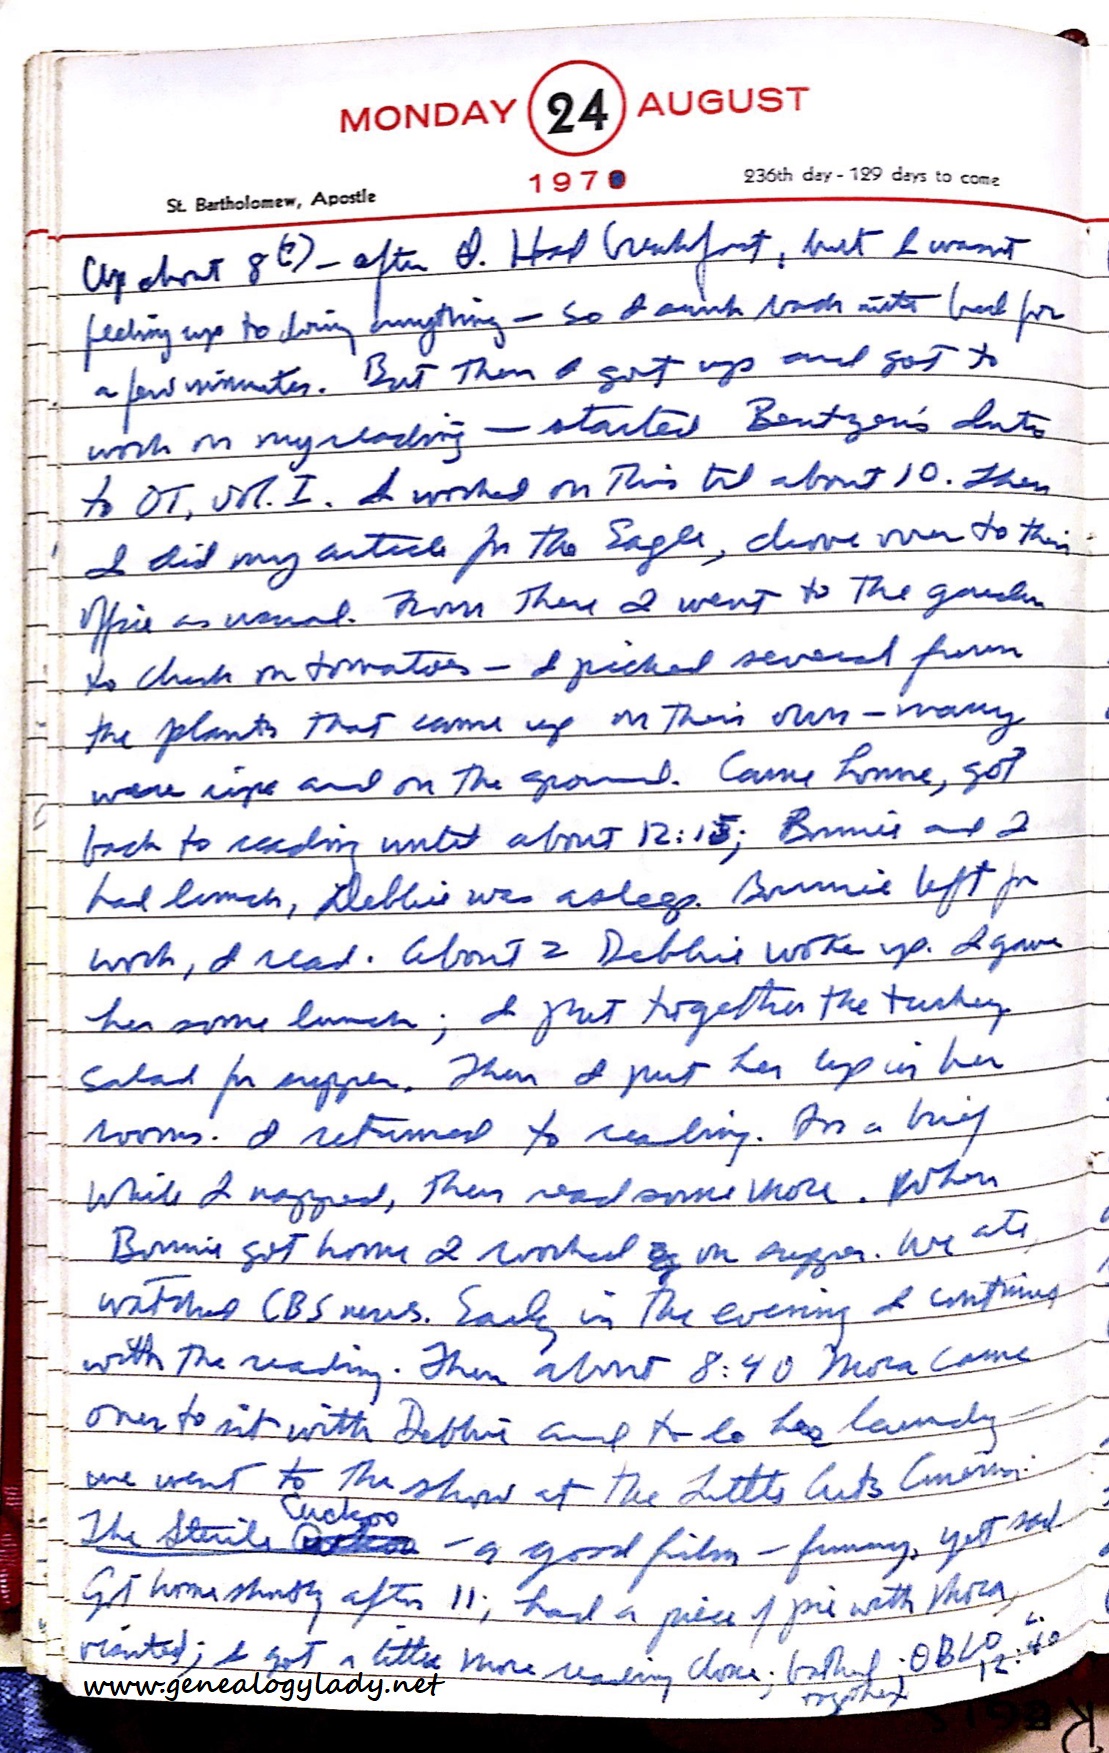 MONDAY 24 AUGUST
1970
St. Bartholomew, Apostle
236th day - 129 days to come
Up about 8(?) - after I. Had breakfast, but I wasn't
feeling up to doing anything - so I sunk back into bed for
a few minutes. But then I got up and got to
work on my reading - started Bentzen's Intro
to OT, vol. I. I worked on this til about 10. Then
I did my article for the Eagle, drove over to their
office as usual. From there I went to the garden
to check on tomatoes - I picked several from
the plants that came up on their own - many
were ripe and on the ground. Came home, got
back to reading until about 12:15; Bonnie and I
had lunch, Debbie was asleep. Bonnie left for
work, I read. About 2 Debbie woke up. I gave
her some lunch; I put together the turkey
salad for supper. Then I put her up in her
room. I returned to reading. For a brief
while I napped, then read some more. When
Bonnie got home I worked on supper. We ate,
watched CBS news. Early in the evening I continued
with the reading. Then about 8:40 Mora came
over to sit with Debbie and to do her laundry -
we went to the show at the Little Arts Cinema:
The Sterile Cuckoo - a good film - funny, yet sad
Got home shortly after 11; had a piece of pie with Mora,
visited; I got a little more reading done; bathed together; OBLO 12:40
www.genealogylady.net